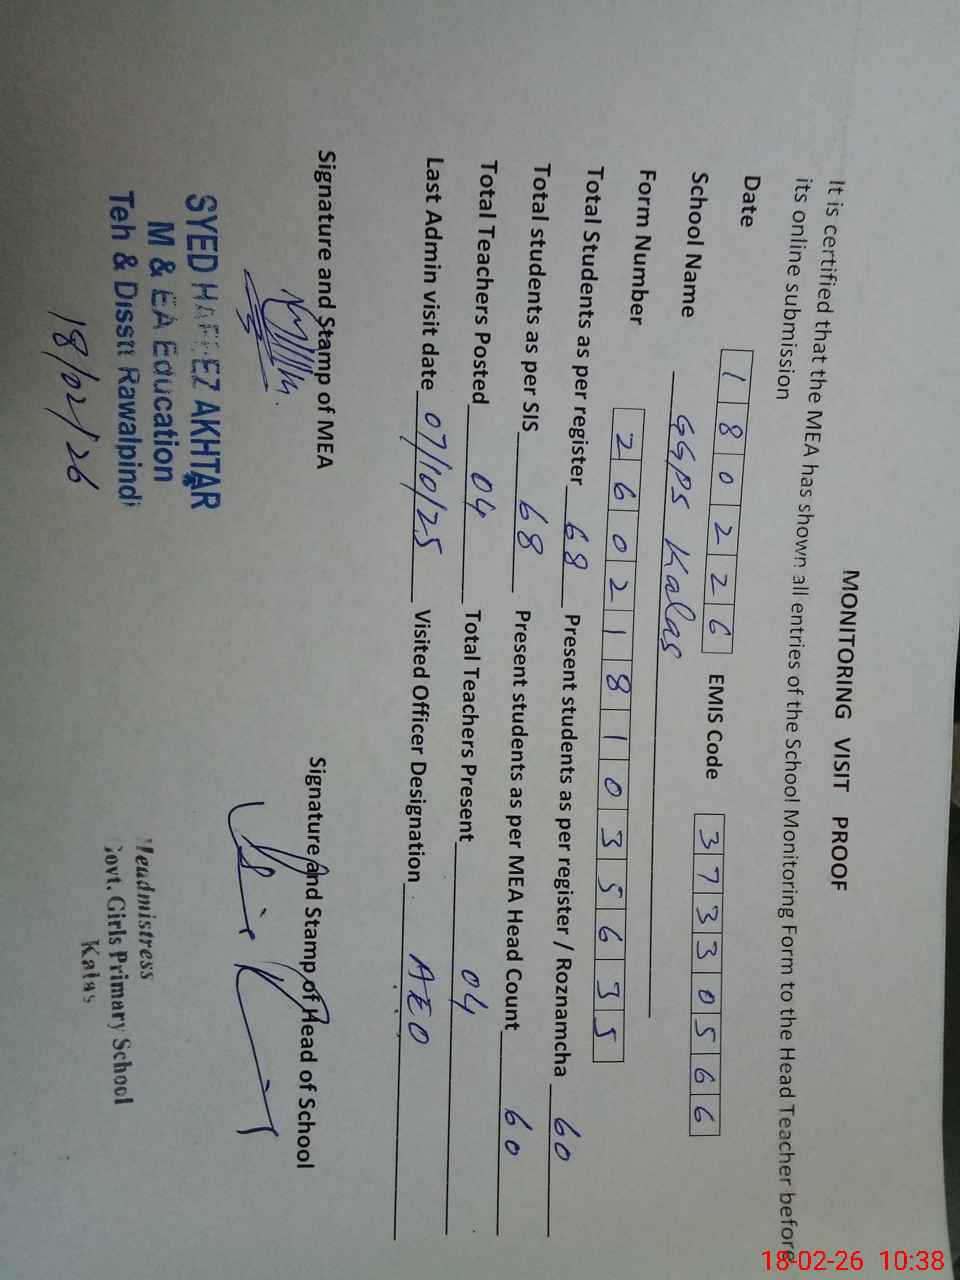 MONITORING VISIT PROOF
It is certified that the MEA has shown all entries of the School Monitoring Form to the Head Teacher before
its online submission
Date 180226 EMIS Code 37330566
School Name GGPS Kalas
Form Number 2602181035635
Total Students as per register 68 Present students as per register / Roznamcha 60
Total students as per SIS 68 Present students as per MEA Head Count 60
Total Teachers Posted 04 Total Teachers Present 04
Last Admin visit date 07/10/25 Visited Officer Designation AEO
Signature and Stamp of MEA Signature and Stamp of Head of School
SYED HAFEEZ AKHTAR
M & EA Education
Teh & Disstt Rawalpindi
18/02/26
Headmistress
Govt. Girls Primary School
Kalas
18-02-26 10:38